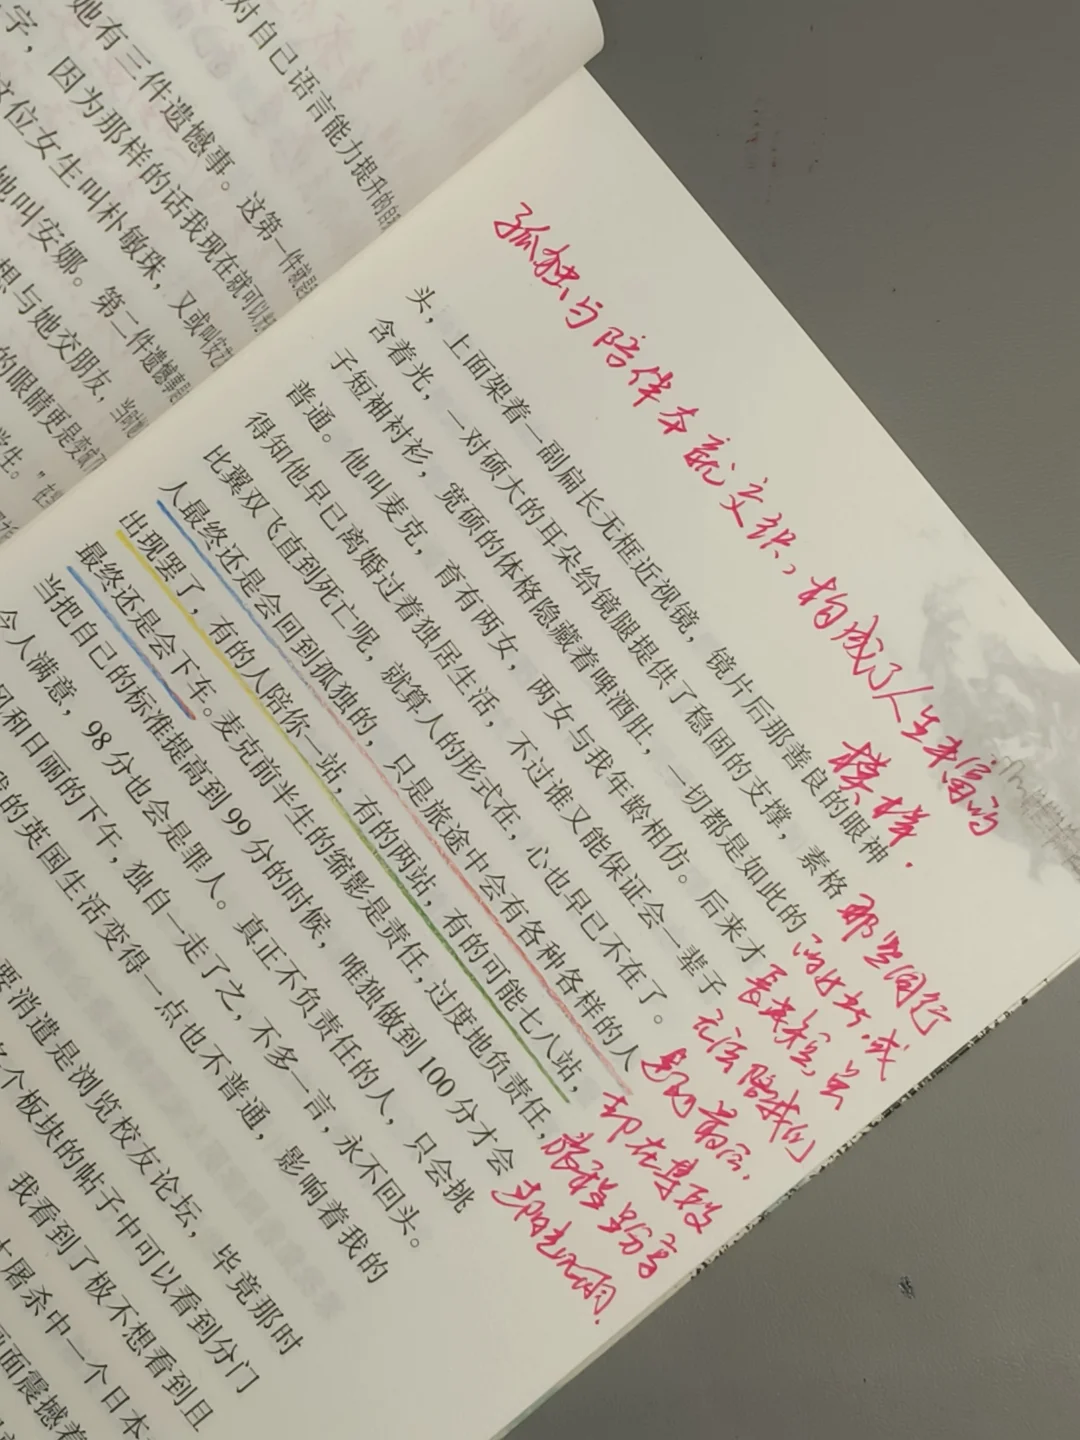 对自己语言能力提升的自
她有三件遗憾事。这第一件就是
字，因为那样的话我现在就可以
这位女生叫朴敏珠，又或叫安
她叫安娜。第二件遗憾事
想与她交朋友，当时她
的眼睛更是变成
学生。”
孤独与陪伴本就交织，构成了人生丰富的
模样，
那些同行
的好书，或
长或短，虽
无法陪我们
走到最后，
却在某段
旅程里分享
头，上面架着一副扁长无框近视镜，镜片后那善良的眼神
含着光，一对硕大的耳朵给镜腿提供了稳固的支撑，素格
子短袖衬衫，宽硕的体格隐藏着啤酒肚，一切都是如此的
普通。他叫麦克，育有两女，两女与我年龄相仿。后来才
得知他早已离婚过着独居生活，不过谁又能保证会一辈子
比翼双飞直到死亡呢，就算人的形式在，心也早已不在了。
人最终还是会回到孤独的，只是旅途中会有各种各样的人
出现罢了，有的人陪你一站，有的两站，有的可能七八站，
最终还是会下车。麦克前半生的缩影是责任，过度地负责任，
当把自己的标准提高到99分的时候，唯独做到100分才会
令人满意，98分也会是罪人。真正不负责任的人，只会挑
风和日丽的下午，独自一走了之，不多一言，永不回头。
我的英国生活变得一点也不普通，影响着我的
要消遣是浏览校友论坛，毕竟那时
各个板块的帖子中可以看到分门
我看到了极不想看到且
大屠杀中一个日本
画面震撼着